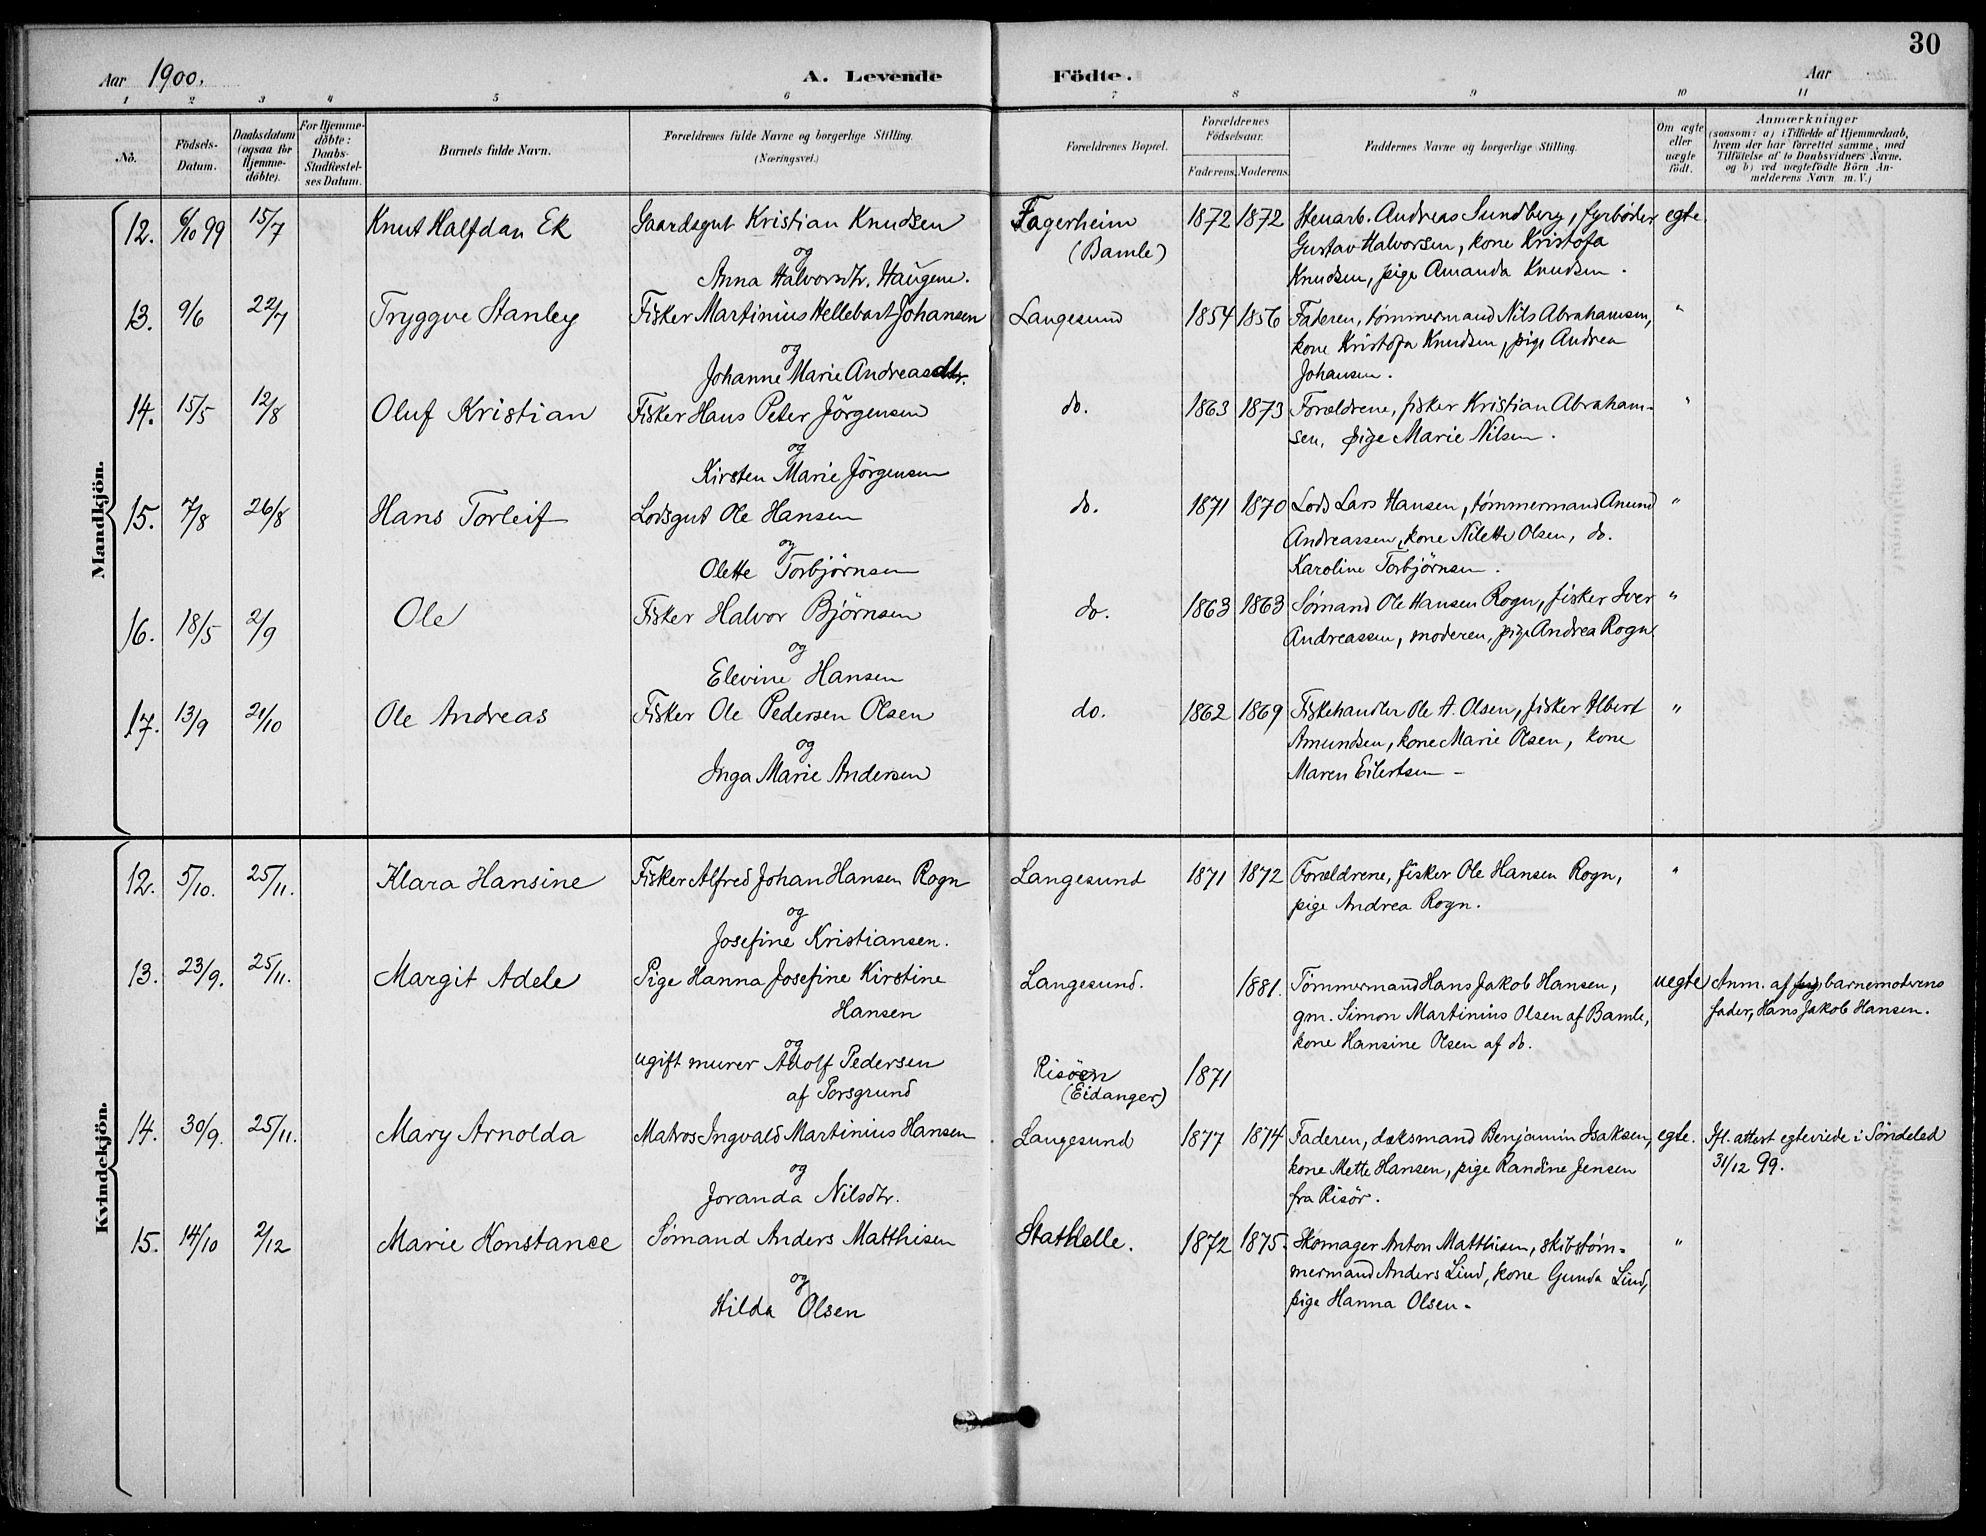 30
Aar 1900.
A. Levende Födte.
Aar
1 2 3 4 5 6 7 8 9 10 11
No.
Födsels-
Datum.
Daabsdatum
(ogsaa for
Hjemme-
döbte).
For Hjemme-
döbte:
Daabs-
Stadfæstel-
ses Datum.
Barnets fulde Navn.
Forældrenes fulde Navne og borgerlige Stilling.
(Næringsvei.)
Forældrenes Bopæl.
Forældrenes
Födselsaar.
Faderens. Moderens.
Faddernes Navne og borgerlige Stilling.
Om ægte
eller
uægte
födt.
Anmærkninger
(saasom: a) i Tilfælde af Hjemmedaab,
hvem der har forrettet samme, med
Tilföielse af to Daabsvidners Navne.
og b) ved uægtefödte Börn An-
melderens Navn m. V.)
Mandkjön.
12. 6/10 99 15/7 Knut Halfdan Ek Gaardsgut Kristian Knudsen Fagerheim 1872 1872 Stenarb. Andreas Sundberg, fyrbøder egte
og (Bamle) Gustav Halvorsen, kone Kristofa
Anna Halvorsdtr. Haugene. Knudsen, pige Amanda Knudsen.
13. 9/6 22/7 Tryggve Stanley Fisker Martinius Hellebart Johansen Langesund 1854 1856 Faderen, tømmermand Nils Abrahamsen, "
og kone Kristofa Knudsen, pige Andrea
Johanne Marie Andreasdtr. Johansen.
14. 15/5 12/8 Oluf Kristian Fisker Hans Peter Jörgensen do. 1863 1873 Forældrene, fisker Kristian Abraham- "
og sen, pige Marie Nilsen.
Kirsten Marie Jörgensen
15. 7/8 26/8 Hans Torleif Lodsgut Ole Hansen do. 1871 1870 Lods Lars Hansen, tømmermand Amund "
og Andreassen, kone Nilette Olsen, do.
Olette Torbjörnsen Karoline Torbjörnsen.
16. 18/5 2/9 Ole Fisker Halvor Bjørnsen do. 1863 1863 Sømand Ole Hansen Rogn, fisker Iver "
og Andreassen, moderen, pige Andrea Rogn
Elevine Hansen
17. 13/9 21/10 Ole Andreas Fisker Ole Pedersen Olsen do. 1862 1869 Fiskehandler Ole A. Olsen, fisker Albert "
og Amundsen, kone Marie Olsen, kone
Inga Marie Andersen Maren Eilertsen -
Kvindekjön.
12. 5/10. 25/11. Klara Hansine Fisker Alfred Johan Hansen Rogn Langesund 1871 1872 Forældrene, fisker Ole Hansen Rogn, "
og pige Andrea Rogn.
Josefine Kristiansen.
13. 23/9. 25/11. Margit Adele Pige Hanna Josefine Kirstine Langesund. 1881. Tømmermand Hans Jakob Hansen, uegte Anm. af barnemoderens
Hansen gm. Simon Martinius Olsen af Bamle, fader, Hans Jakob Hansen.
og kone Hansine Olsen af do.
ugift murer Adolf Pedersen Risöen 1871
af Porsgrund (Eidanger)
14. 30/9. 25/11. Mary Arnolda Matros Ingvald Martinius Hansen Langesund 1877 1874 Faderen, dæksmand Benjamin Isaksen, egte. Ifl. attest egteviede i Söndeled
og kone Mette Hansen, pige Randine Jensen 31/12 99.
Joranda Nilsdtr. fra Risör.
15. 14/10 2/12 Marie Konstance Sømand Anders Matthisen Stathelle. 1872 1875. Skomager Anton Matthisen, skibstøm- "
og mermand Anders Lind, kone Gunda Lind,
Hilda Olsen pige Hanna Olsen.